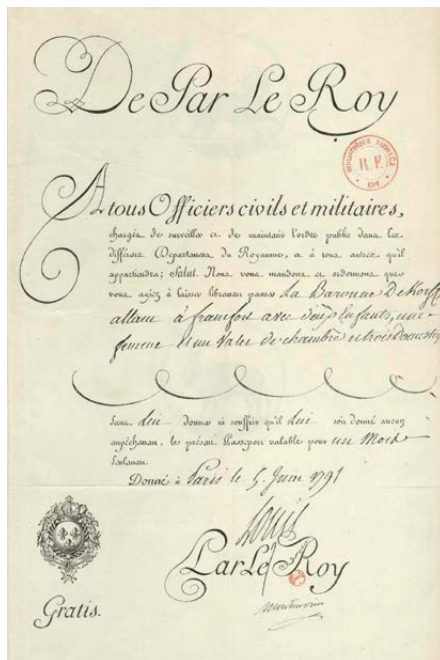 De Par Le Roy
BIBLIOTHÈQUE
R.F.
A tous Officiers civils et militaires,
chargés de surveiller et de maintenir l'ordre public dans les
différens Départemens du Royaume, et à tous autres qu'il
appartiendra; Salut. Nous vous mandons et ordonnons que
vous ayiez à laisser librement passer la Baronne De Korff
allant à francfort avec deux Enfants, une
femme et un Valet de chambre et trois Domestiques
Sans lui donner ni souffrir qu'il lui soit donné aucun
empêchement, le présent Passeport valable pour un Mois
seulement.
Donné à Paris le 5. Juin 1791
Louis
Par Le Roy
Montmorin
Gratis.